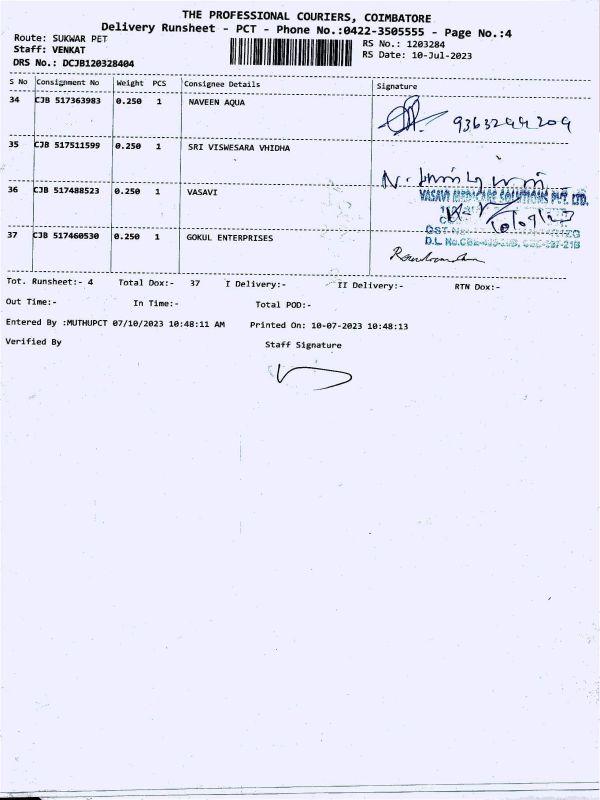 THE PROFESSIONAL COURIERS, COIMBATORE
Delivery Runsheet - PCT - Phone No.:0422-3505555 - Page No.:4
Route: SUKWAR PET
RS No.: 1203284
Staff: VENKAT
RS Date: 10-Jul-2023
DRS No.: DCJB120328404
S No Consignment No Weight PCS Consignee Details Signature
34 CJB 517363983 0.250 1 NAVEEN AQUA
35 CJB 517511599 0.250 1 SRI VISWESARA VHIDHA
36 CJB 517488523 0.250 1 VASAVI
VASAVI MEDICARE SOLUTIONS PVT. LTD.
37 CJB 517460530 0.250 1 GOKUL ENTERPRISES
Tot. Runsheet:- 4 Total Dox:- 37 I Delivery:- II Delivery:- RTN Dox:-
Out Time:- In Time:- Total POD:-
Entered By :MUTHUPCT 07/10/2023 10:48:11 AM Printed On: 10-07-2023 10:48:13
Verified By Staff Signature